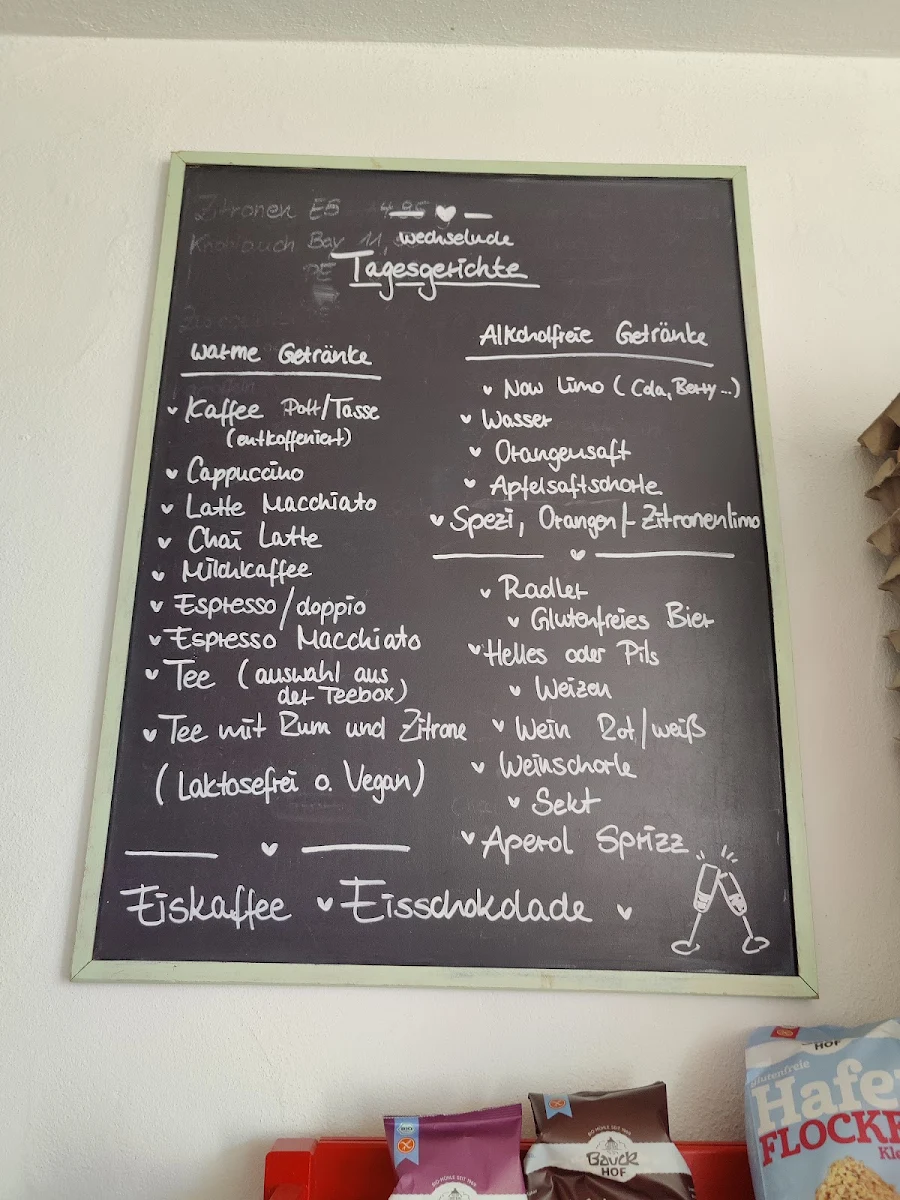 Zitronen ES 4,95
Knoblauch Bay 11,
DE
wechselnde
Tagesgerichte
warme Getränke
Kaffee Pott/Tasse
(entkoffeniert)
Cappuccino
Latte Macchiato
Chai Latte
Milchkaffee
Espresso/doppio
Espresso Macchiato
Tee (auswahl aus
der Teebox)
Tee mit Rum und Zitrone
(Laktosefrei o. Vegan)
Alkoholfreie Getränke
Now Limo (Cola, Berry...)
Wasser
Orangensaft
Apfelsaftschorle
Spezi, Orangen/- Zitronenlimo
Radler
Glutenfreies Bier
Helles oder Pils
Weizen
Wein Rot/weiß
Weinschorle
Sekt
Aperol Sprizz
Eiskaffee Eisschokolade
BIO
BIO-MÜHLE SEIT 1969
BIO-MÜHLE SEIT 1969
Bauck
HOF
HOF
Glutenfreie
Hafe
FLOCK
Kle